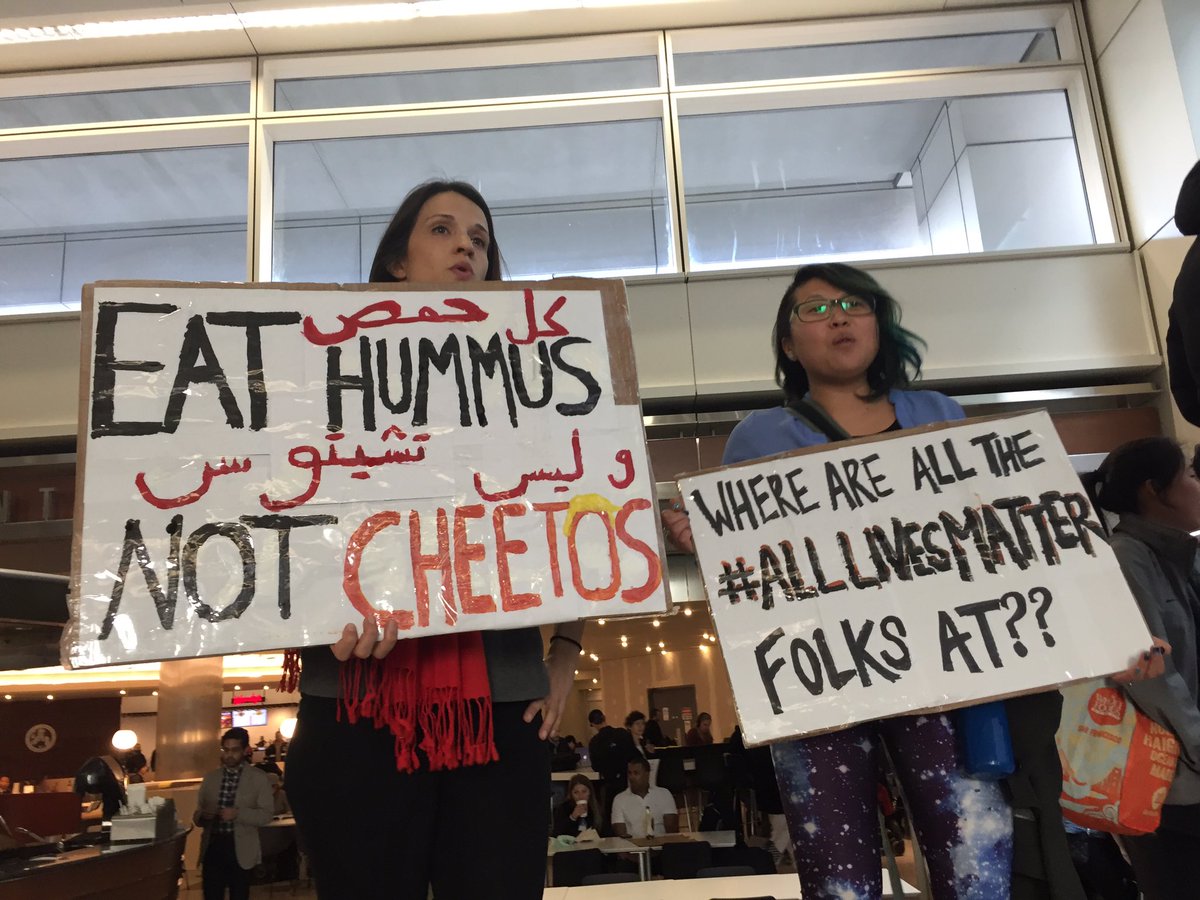 كل حمص
EAT HUMMUS
وليس تشيتوس
NOT CHEETOS
WHERE ARE ALL THE
#ALLLIVESMATTER
FOLKS AT??